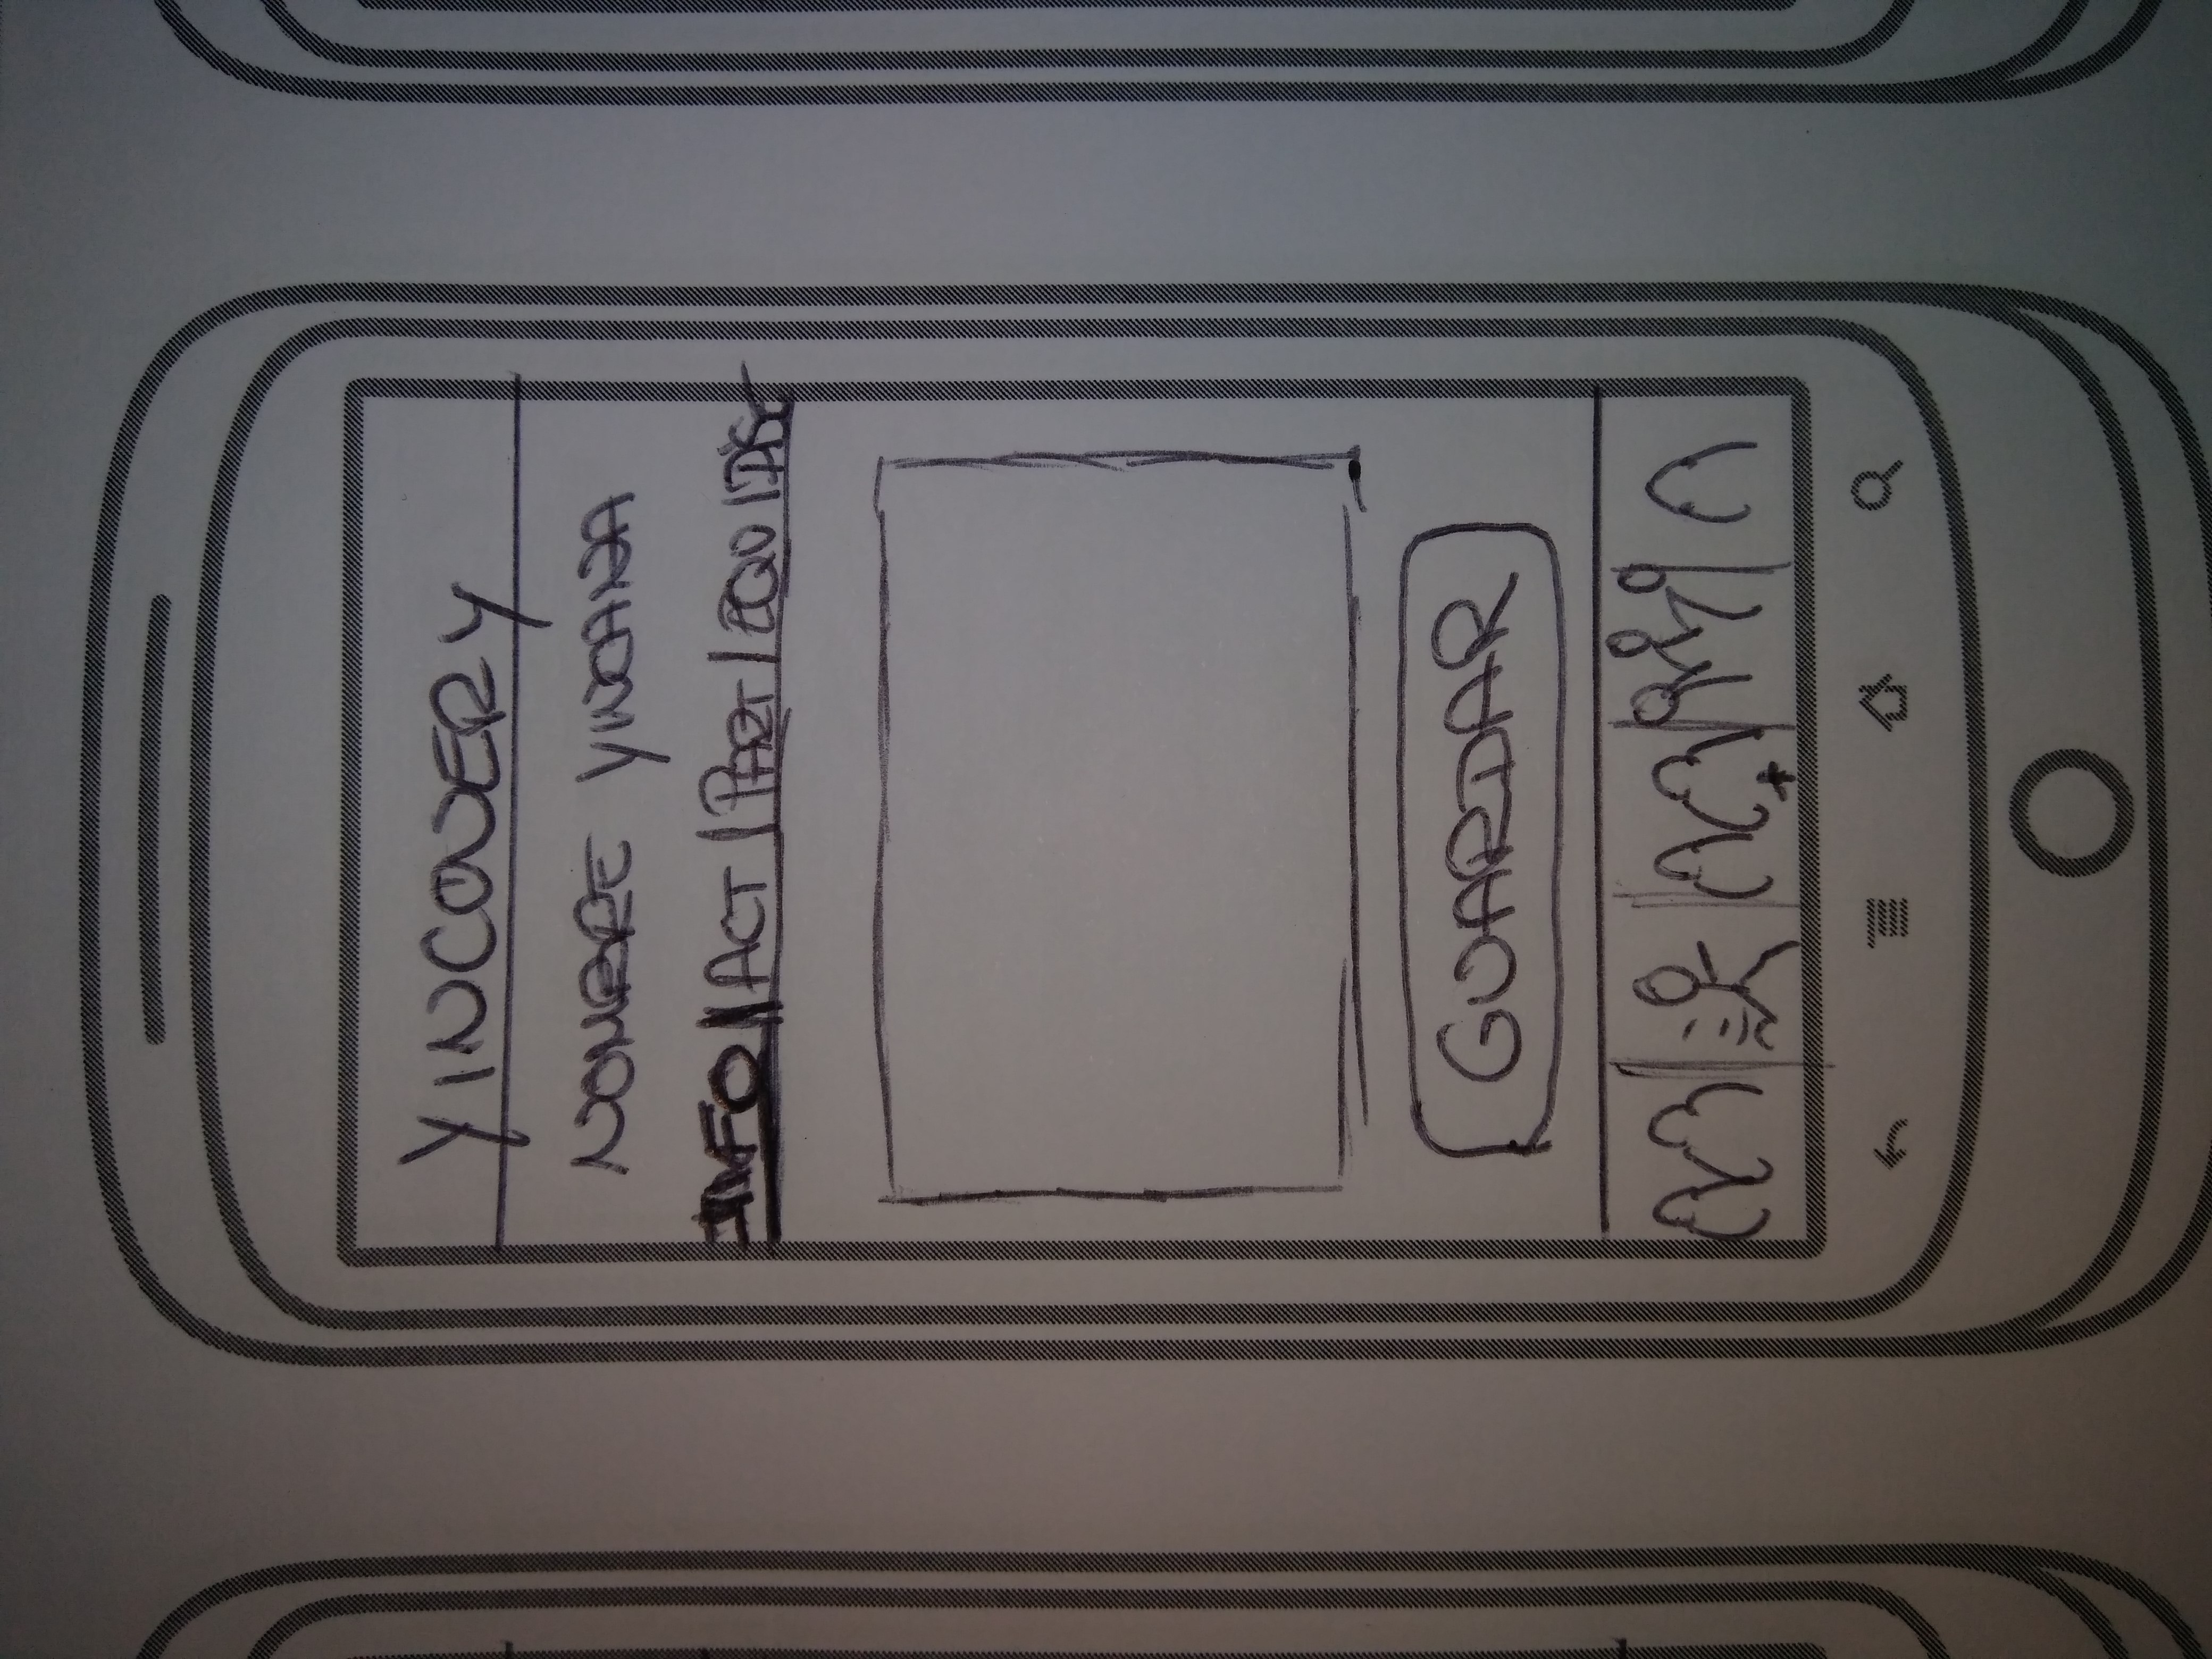 YINCOVERY
NOMBRE YINCANA
INFO | ACT | PART | EQU | DISC
GUARDAR